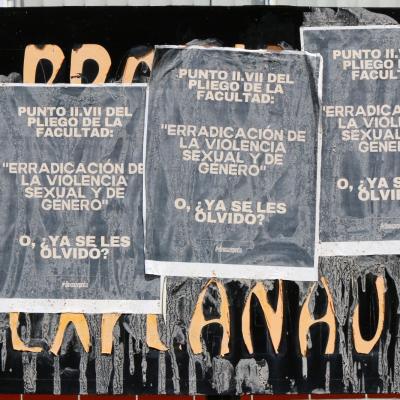 PUNTO II.VII DEL
PLIEGO DE LA
FACULTAD:
"ERRADICACIÓN DE
LA VIOLENCIA
SEXUAL Y DE
GÉNERO"
O, ¿YA SE LES
OLVIDO?
PUNTO II.VII DEL
PLIEGO DE LA
FACULTAD:
"ERRADICACIÓN DE
LA VIOLENCIA
SEXUAL Y DE
GÉNERO"
O, ¿YA SE LES
OLVIDO?
PUNTO II.V
PLIEGO DE
FACULT
"ERRADICA
LA VIOLE
SEXUAL
GÉNER
O, ¿YA S
OLVI